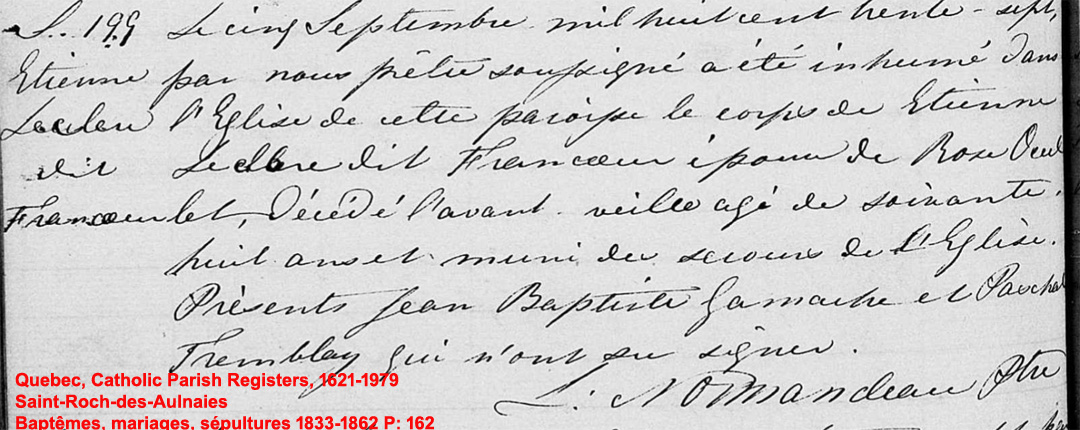 S.. 199 Le cinq Septembre mil huit cent trente-sept,
Etienne par nous prêtre soussigné a été inhumé dans
Leclerc l'Eglise de cette paroisse le corps de Etienne
dit Leclerc dit Francoeur époux de Rose Ouel
Francoeur let, décédé l'avant-veille agé de soixante-
huit ans et muni des secours de l'Eglise.
Présents Jean Baptiste Gamache et Paschal
Tremblay qui n'ont su signer.
L. Normandeau Ptre
Quebec, Catholic Parish Registers, 1621-1979
Saint-Roch-des-Aulnaies
Baptêmes, mariages, sépultures 1833-1862 P: 162